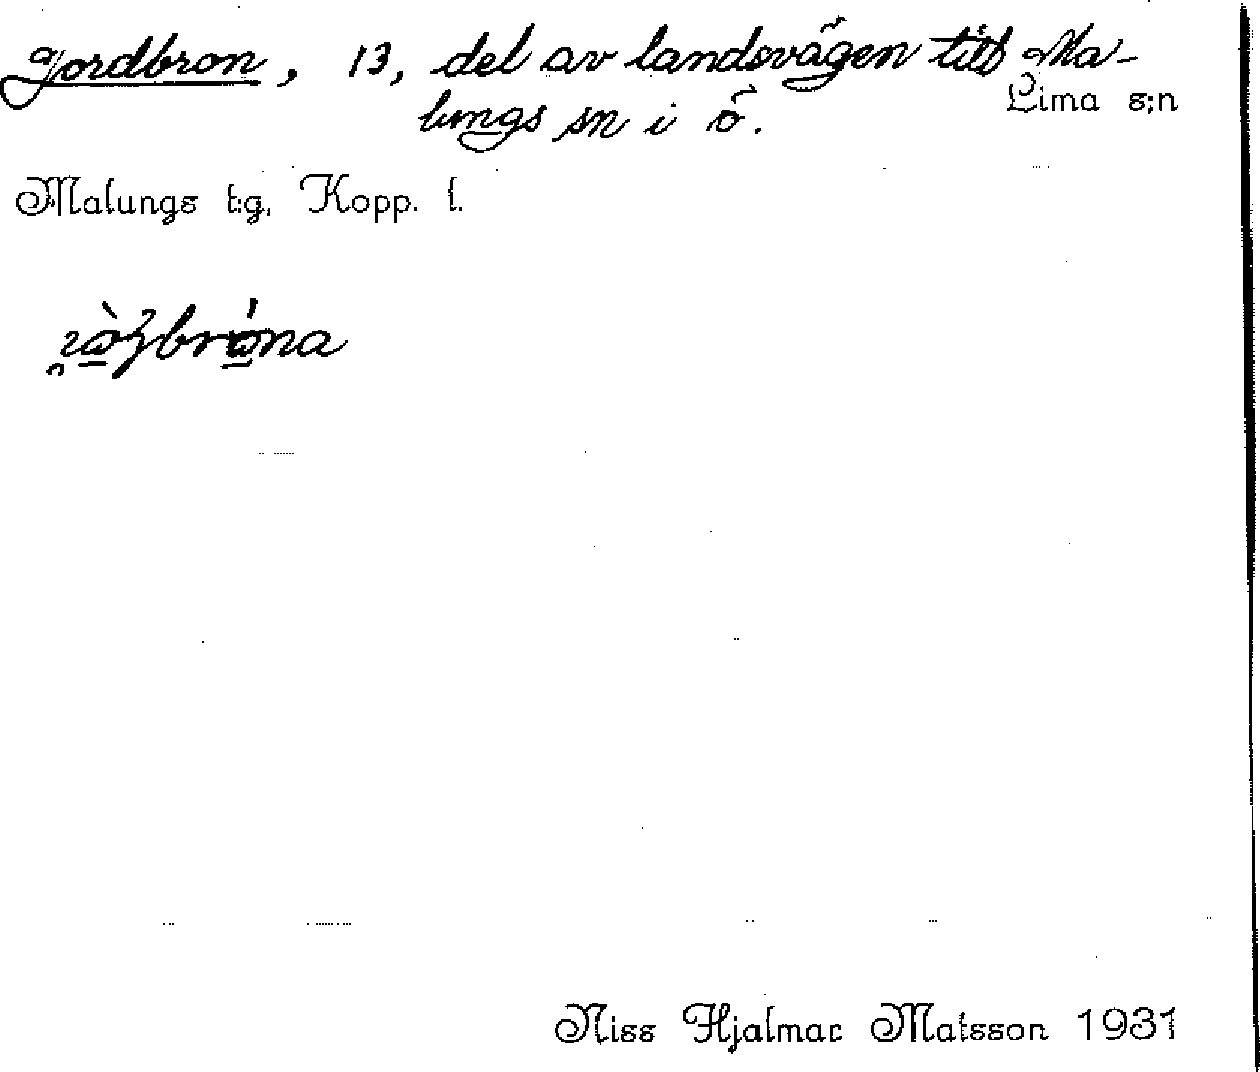 Gjordbron, 13, del av landsvägen till Ma-
lungs sn i ö.
Lima s:n
Malungs t:g, Kopp. l.
Niss Hjalmar Matsson 1931